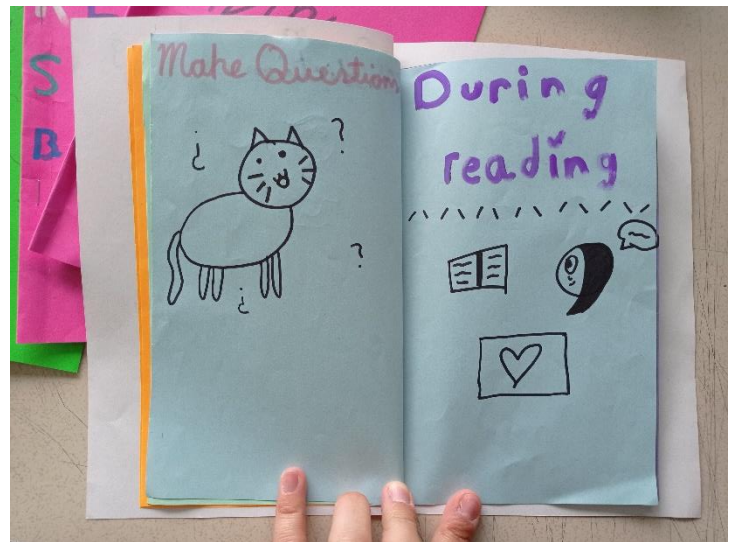 Make Questions
¿ ?
?
¿
During
reading
S
B